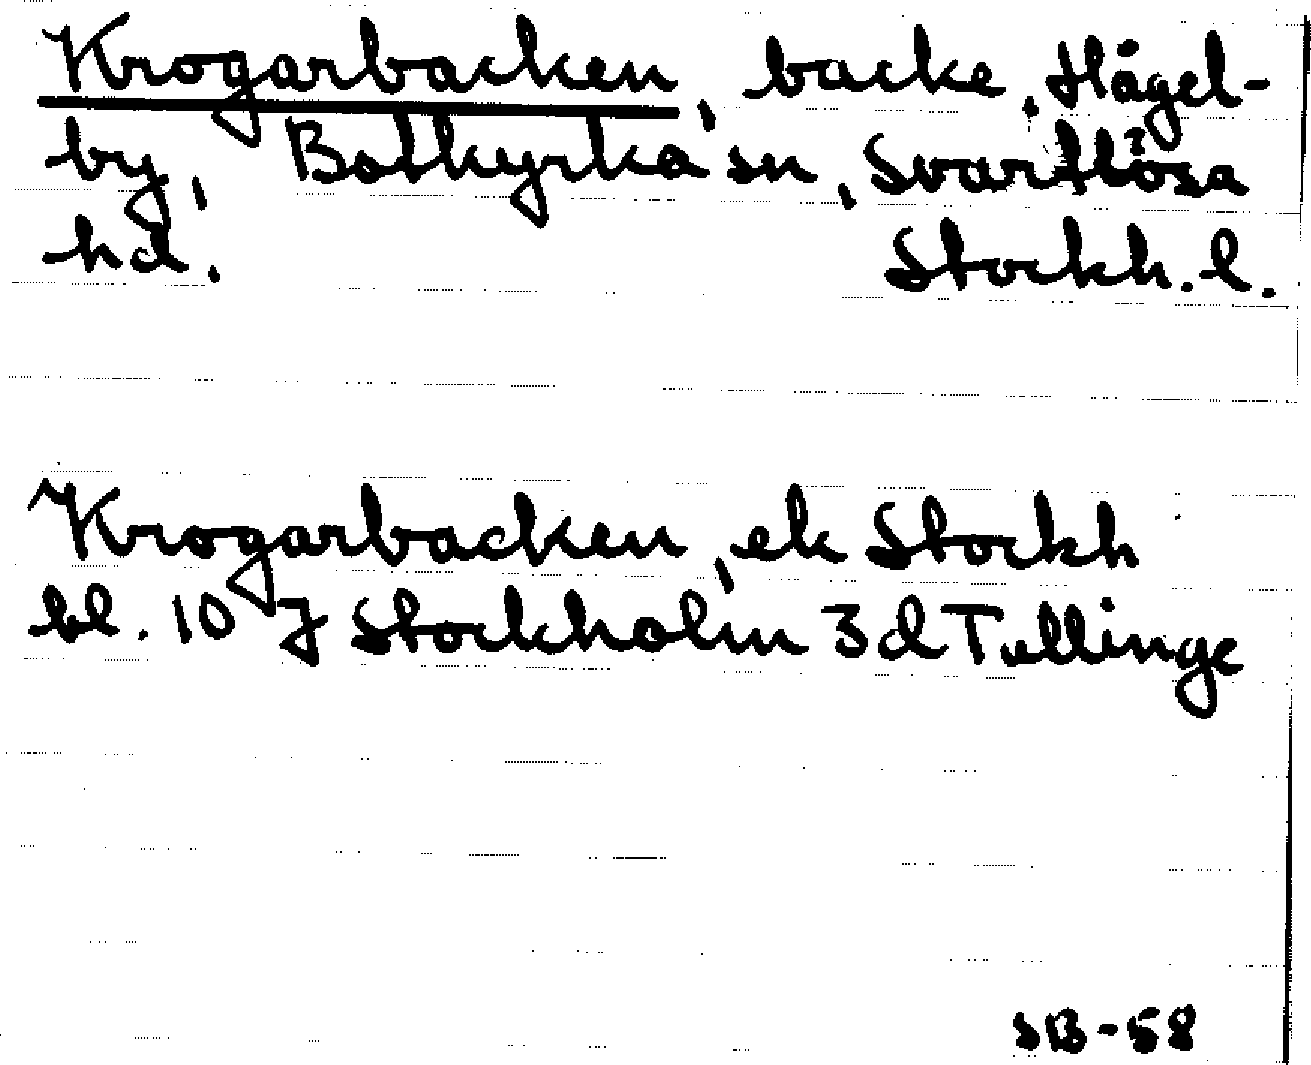 Krogarbacken, backe, Hågel-
by, Botkyrka sn, Svartlösa
hd. Stockh. l.
Krogarbacken, ek Stockh
bl. 10 J Stockholm 3d Tullinge
SB-58